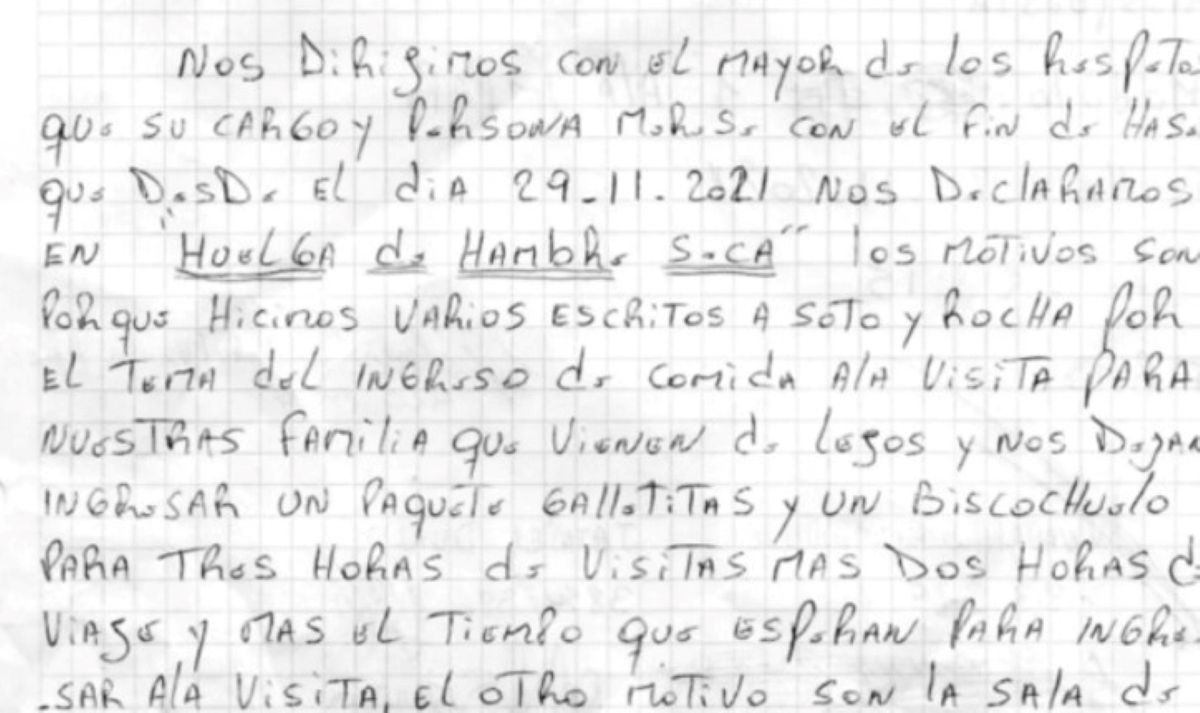 NOS DiRigiMOS CON EL MAYOR de los RespeTos
que SU CARGO Y PeRSONA MeReSe CON el fiN de HASe
que DesDe El diA 29-11-2021 NOS DeClARAMOS
EN "HuelGA de HAMbRe SeCA" los MOTiVOS SON
PORque HiciMOS VARiOS ESCRiTOS A SOTO y ROCHA POR
EL TeMA del INGReSO de COMidA A lA ViSiTA PARA
NUeSTRAS fAMiliA que VieNeN de legos y NOS DejAN
INGReSAR UN PAqueTe GAlleTiTAS y UN BiSCOCHUelo
PARA TReS HORAS de ViSiTAS MAS DOS HORAS de
ViAge y MAS el TieMPO que eSPeRAN PARA iNGRe
-SAR A lA ViSiTA, El OTRO MOTiVO SON lA SAlA de